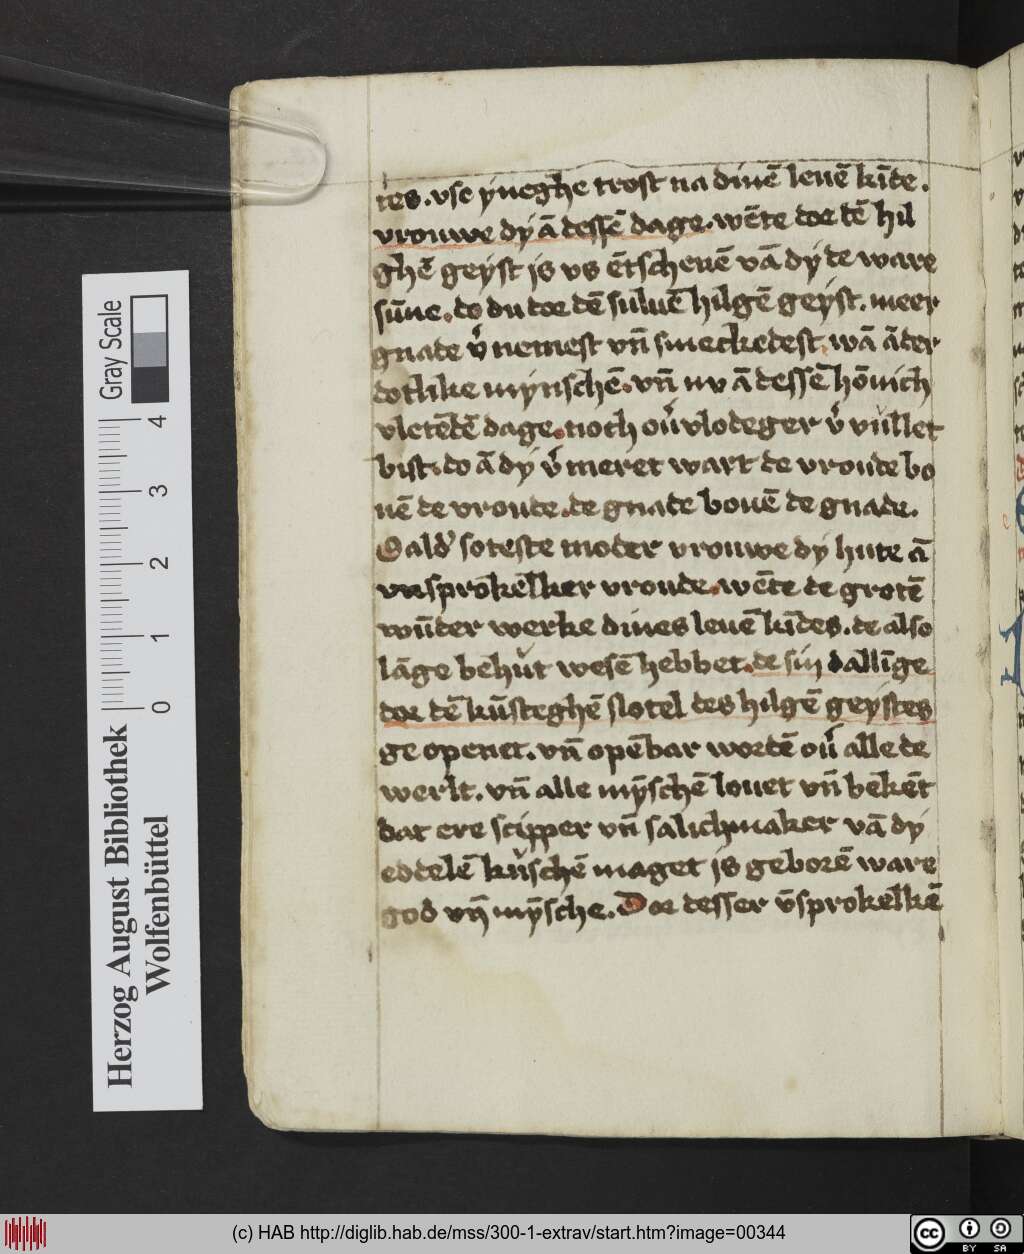 tes. vse yneghe trost na dinē leuē kīde.
vrouwe dy ā dessē dage. wēte doe dē hil
ghē geyst js vs ētscheuē vā dy de ware
sūne. do du doe dē suluē hilgē geyst. meer
gnade v̉ nemest vn̄ smeckedest. wā āder
dotlike mynschē. vn̄ nv ā dessē hōnich
vletēdē dage. noch ou̓ vlodeger v̓ vu̓llet
bist. do ā dy v̓ meret wart de vroude bo
uē de vroude. de gnade bouē de gnade.
O ald̓ soteste moder vrouwe dy hute ā
vnsprokēlker vroude. wēte de grotē
wūder werke dines leuē kīdes. de also
lāge behu̓t wesē hebbet. de sin dallīge
doe dē kūsteghē slotel des hilgē geystes
ge openet. vn̄ opēbar wordē ou̓ alle de
werlt. vn̄ alle mȳschē louet vn̄ bekēt
dat ere scipper vn̄ salichmaker vā dy
eddelē ku̓schē maget js geborē ware
god vn̄ mȳsche. Doe desser v̄sprokelkē
Gray Scale
4 3 2 1 0
Herzog August Bibliothek
Wolfenbüttel
(c) HAB http://diglib.hab.de/mss/300-1-extrav/start.htm?image=00344
cc BY SA